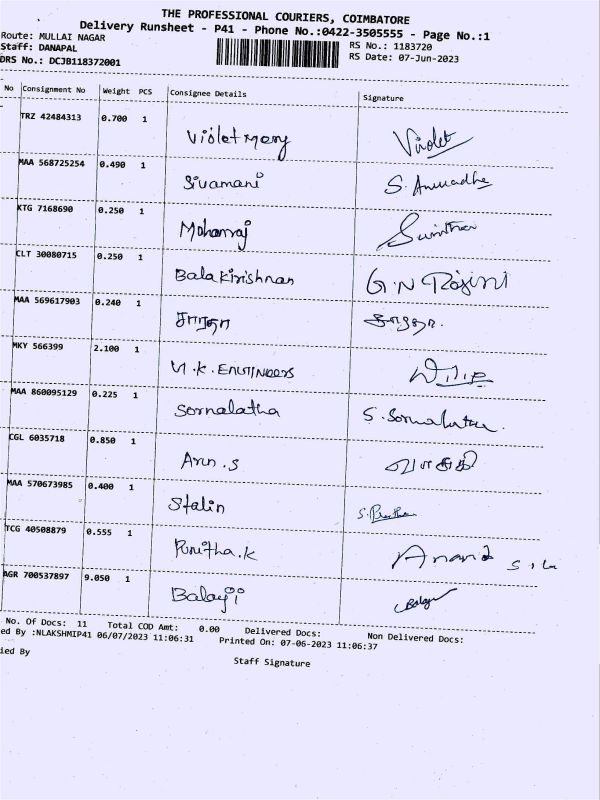 THE PROFESSIONAL COURIERS, COIMBATORE
Delivery Runsheet - P41 - Phone No.:0422-3505555 - Page No.:1
Route: MULLAI NAGAR
RS No.: 1183720
Staff: DANAPAL
RS Date: 07-Jun-2023
DRS No.: DCJB118372001
No Consignment No Weight PCS Consignee Details Signature
TRZ 42484313 0.700 1 Violet Mary Violet
MAA 568725254 0.490 1 Sivamani S. Anuradha
KTG 7168690 0.250 1 Mohanraj
CLT 30080715 0.250 1 Bala Kirishnan G.N Rojini
MAA 569617903 0.240 1 சாரதா சாரதா.
MKY 566399 2.100 1 V.K. ENGINEERS
MAA 860095129 0.225 1 Sornalatha S. Sornalatha.
CGL 6035718 0.850 1 Arun.S
MAA 570673985 0.400 1 Stalin
TCG 40508879 0.555 1 Punitha.K Anand
AGR 700537897 9.050 1 Balaji Balaji
No. Of Docs: 11 Total COD Amt: 0.00 Delivered Docs: Non Delivered Docs:
ed By :NLAKSHMIP41 06/07/2023 11:06:31 Printed On: 07-06-2023 11:06:37
ied By
Staff Signature